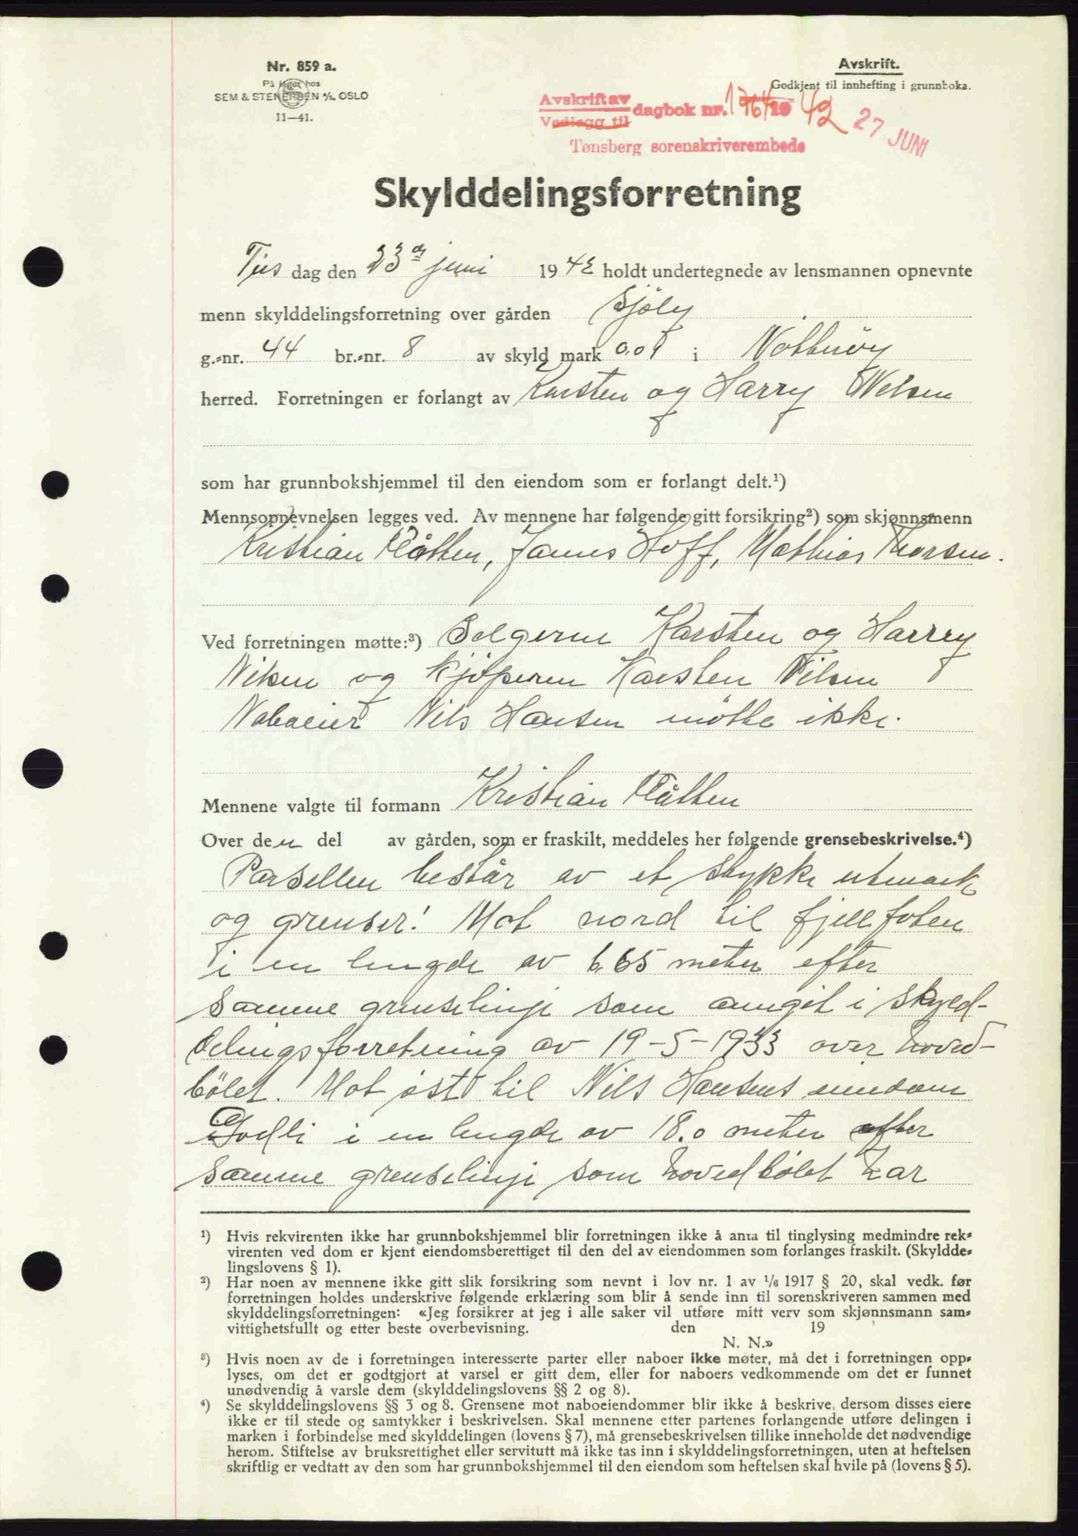 Nr. 859 a.
På lager hos
SEM & STENERSEN A/S, OSLO
11—41.
Avskrift.
Godkjent til innhefting i grunnboka.
Avskrift av
Vedlegg til dagbok nr. 1764 19 42
Tønsberg sorenskriverembede
27 JUNI
Skylddelingsforretning
Tirs dag den 23de juni 1942 holdt undertegnede av lensmannen opnevnte
menn skylddelingsforretning over gården Sjøly
g.-nr. 44 br.-nr. 8 av skyld mark 0.09 i Nøtterøy
herred. Forretningen er forlangt av Karsten og Harry Nilsen
som har grunnbokshjemmel til den eiendom som er forlangt delt.¹)
Mennsopnevnelsen legges ved. Av mennene har følgende gitt forsikring²) som skjønnsmenn
Kristian Flåtten, James Hoff, Mathias Thorsen.
Ved forretningen møtte:³) Selgerne Karsten og Harrry
Nilsen og kjøperen Karsten Nilsen
Naboeier Nils Hansen møtte ikke.
Mennene valgte til formann Kristian Flåtten
Over den del av gården, som er fraskilt, meddeles her følgende grensebeskrivelse.⁴)
Parsellen består av et stykke utmark
og grenser: Mot nord til fjellfoten
i en lengde av 6.65 meter efter
samme grenselinje som angit i skyld-
delingsforretning av 19-5-1933 over hoved-
bølet. Mot øst til Nils Hansens eiendom
Godli i en lengde av 18.0 meter efter
samme grenselinje som hovedbølet har
¹) Hvis rekvirenten ikke har grunnbokshjemmel blir forretningen ikke å anta til tinglysing medmindre rek-
virenten ved dom er kjent eiendomsberettiget til den del av eiendommen som forlanges fraskilt. (Skyldde-
lingslovens § 1).
²) Har noen av mennene ikke gitt slik forsikring som nevnt i lov nr. 1 av ¹/₆ 1917 § 20, skal vedk. før
forretningen holdes underskrive følgende erklæring som blir å sende inn til sorenskriveren sammen med
skylddelingsforretningen: «Jeg forsikrer at jeg i alle saker vil utføre mitt verv som skjønnsmann sam-
vittighetsfullt og etter beste overbevisning. den 19
N. N.»
³) Hvis noen av de i forretningen interesserte parter eller naboer ikke møter, må det i forretningen opp-
lyses, om det er godtgjort at varsel er gitt dem, eller for naboers vedkommende om det er funnet
unødvendig å varsle dem (skylddelingslovens §§ 2 og 8).
⁴) Se skylddelingslovens §§ 3 og 8. Grensene mot naboeiendommer blir ikke å beskrive, dersom disses eiere
ikke er til stede og samtykker i beskrivelsen. Skal mennene etter partenes forlangende utføre delingen i
marken i forbindelse med skylddelingen (lovens § 7), må grensebeskrivelsen tillike inneholde det nødvendige
herom. Stiftelse av bruksrettighet eller servitutt må ikke tas inn i skylddelingsforretningen, uten at heftelsen
skriftlig er vedtatt av den som har grunnbokshjemmel til den eiendom som heftelsen skal hvile på (lovens § 5).